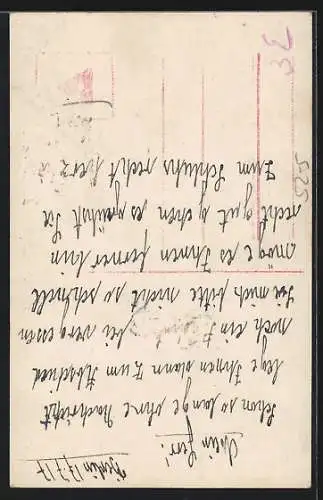 Berlin 17.7.17
Mein Herr!
Schon so lange ohne Nachricht
lege Ihnen dann zum Abschied
noch ein bei vergessen
Sie mich bitte nicht so schnell
möge es Ihnen ferner hin
recht gut gehen es grüßt Sie
Zum Schluhs recht herz
3ε
5225